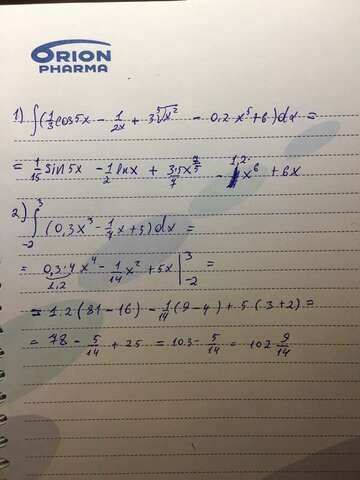 ORION
PHARMA
1) ∫(1/3 cos5x - 1/2x + 3 ⁵√x² - 0,2 x⁵ + 6)dx =
= 1/15 sin 5x - 1/2 ln x + 3·5x^(7/5)/7 - 1,2· x⁶ + 6x
2) ∫₋₂³ (0,3x³ - 1/7 x + 5)dx =
= 0,3·4x⁴ - 1/14 x² + 5x |₋₂³ =
1,2
= 1.2(81-16) - 1/14(9-4) + 5(3+2) =
= 78 - 5/14 + 25 = 103 - 5/14 = 102 9/14